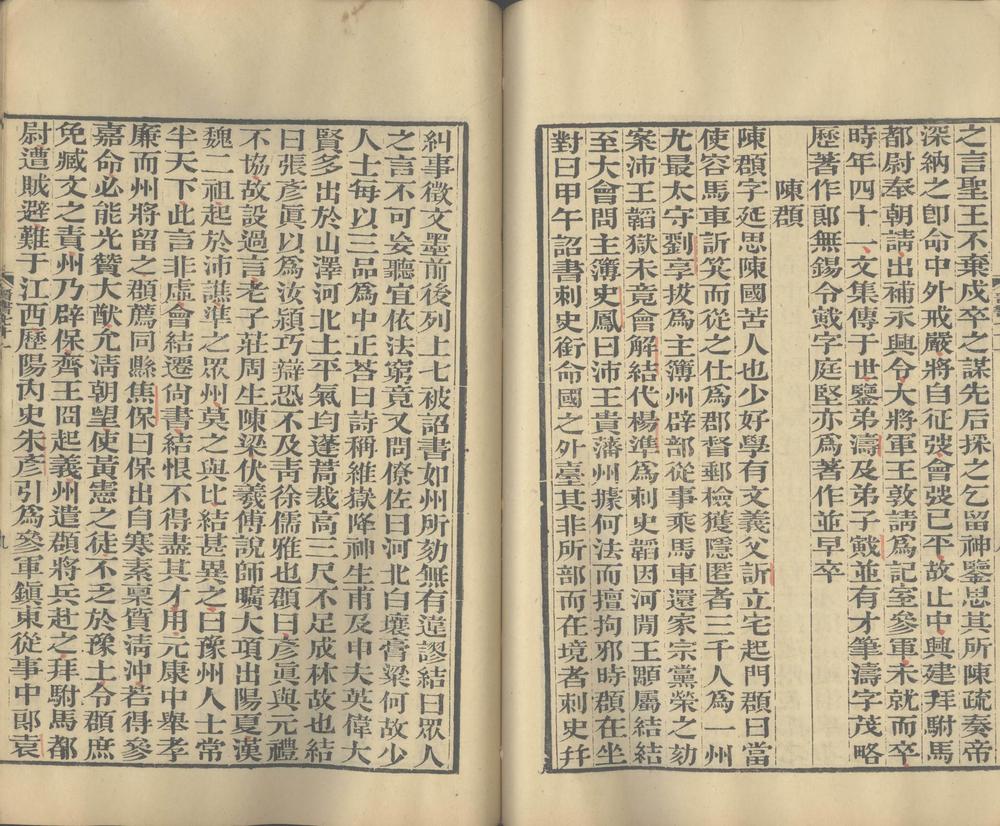 之言聖王不棄戍卒之謀先后採之乞留神鑒思其所陳疏奏帝
深納之卽命中外戒嚴將自征弢會弢已平故止中興建拜駙馬
都尉奉朝請出補永興令大將軍王敦請爲記室參軍未就而卒
時年四十一文集傳于世鑒弟濤及弟子戭並有才筆濤字茂略
歷著作郞無錫令戭字庭堅亦爲著作並早卒
陳頵
陳頵字延思陳國苦人也少好學有文義父訢立宅起門頵曰當
使容馬車訢笑而從之仕爲郡督郵檢獲隱匿者三千人爲一州
尤最太守劉享拔爲主簿州辟部從事乘馬車還家宗黨榮之劾
案沛王韜獄未竟會解結代楊準爲刺史韜因河閒王顒屬結結
至大會問主簿史鳳曰沛王貴藩州據何法而擅拘邪時頵在坐
對曰甲午詔書刺史銜命國之外臺其非所部而在境者刺史幷
糾事徵文墨前後列上七被詔書如州所劾無有違謬結曰眾人
之言不可妄聽宜依法窮竟又問僚佐曰河北白壤膏粱何故少
人士每以三品爲中正荅曰詩稱維嶽降神生甫及申夫英偉大
賢多出於山澤河北土平氣均蓬蒿裁高三尺不足成林故也結
曰張彥眞以爲汝潁巧辯恐不及靑徐儒雅也頵曰彥眞與元禮
不協故設過言老子莊周生陳梁伏羲傅說師曠大項出陽夏漢
魏二祖起於沛譙準之眾州莫之與比結甚異之曰豫州人士常
半天下此言非虛會結遷尙書結恨不得盡其才用元康中舉孝
廉而州將留之頵薦同縣焦保曰保出自寒素稟質淸沖若得參
嘉命必能光贊大猷允淸朝望使黃憲之徒不乏於豫土令頵庶
免臧文之責州乃辟保齊王冏起義州遣頵將兵赴之拜駙馬都
尉遭賊避難于江西歷陽內史朱彥引爲參軍鎭東從事中郞袁